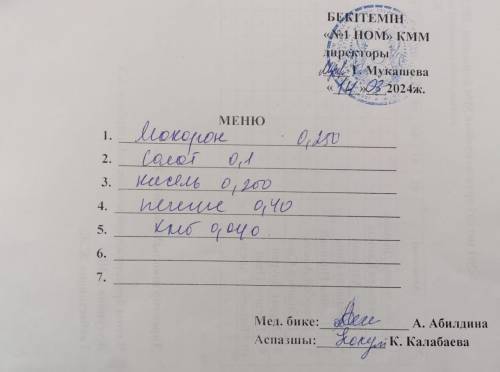 БЕКІТЕМІН
«№1 НОМ» КММ
директоры
Г. Мукашева
«14» 03 2024ж.
МЕНЮ
1. Макорон 0,250
2. Солот 0,1
3. кисель 0,200
4. печенье 0,40
5. 0,040
6.
7.
Мед. бике: А. Абилдина
Аспазшы: К. Калабаева